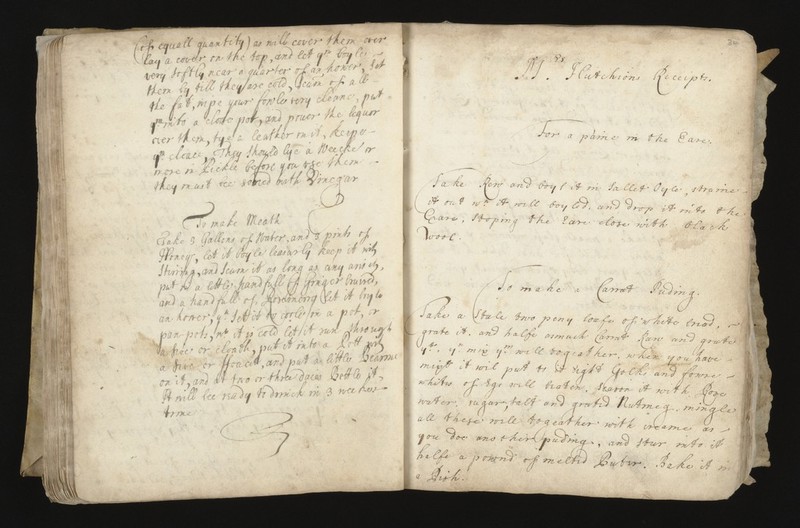 (of equall quantity) as will cover them over
lay a cover on the top, and let ym boyle
very softly near a quarter of an hower, let
them ly till they are cold, scum of all
the fat, wipe your fowles very cleane, put
ym into a close pot, and power the liquor
over them, tye a leather on it, keepe
ym close, They should lye a weeke or
more in Pickle before you use them
they must be served with Vinegar
To make Meath
Take 3 Gallens of Water, and 3 pints of
Honey, let it boyle leasurly keep it with
stiring, and scum it as long as any ariseth,
put in a little handfull of ginger brused,
and a handfull of let it boyle
an hower, yn set it to coole in a pot, or
pan wn it is cold let it run through
a sive or cloath, put it into a
a and put a little
on it, and at two or three days Bottle it,
It will bee ready to drinck in 3 weekes
time
Mrs. Hutchions Receipts.
For a paine in the Eare.
Take Rew and boyl it in Sallet Oyle, straine
it out wn it will boyled, and drop it into the
Eare, stoping the Eare close with black
Wool.
To make a Carrut Puding.
Take a stale two peny loafe of white bread,
grate it. and halfe asmuch Carrut Raw and grate
yt. yn mix ym well together, when you have
mixt it wel put to it eight Yolks and foure
whites of Egs well beaten. Season it with Rose
water, sugar, salt and grated Nutmeg. mingle
all these well togeather with creeme as
you doe another puding, and stur into it
halfe a pound of melted Butter. Bake it in
a Dish.